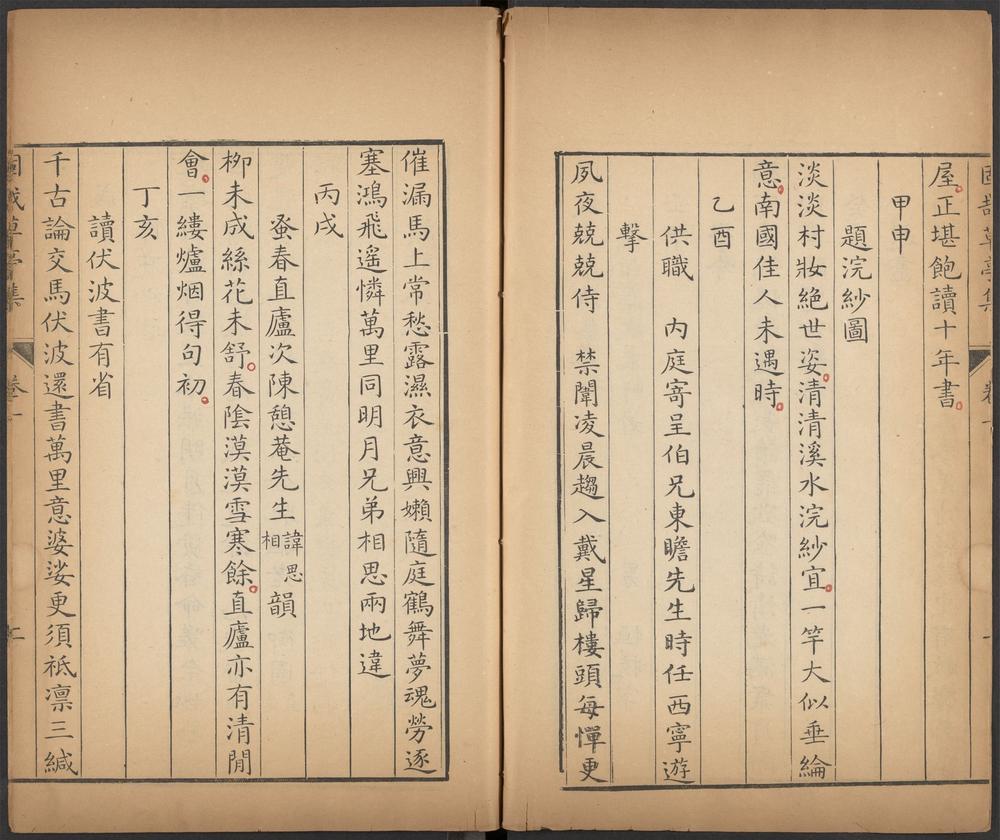 屋正堪飽讀十年書
甲申
題浣紗圖
淡淡村妝絕世姿清清溪水浣紗宜一竿大似垂綸
意南國佳人未遇時
乙酉
供職　内庭寄呈伯兄東瞻先生時任西寧遊
擊
夙夜兢兢侍　禁闈凌晨趨入戴星歸樓頭每憚更
催漏馬上常愁露濕衣意興嬾隨庭鶴舞夢魂勞逐
塞鴻飛遙憐萬里同明月兄弟相思兩地違
丙戌
蚤春直廬次陳憩菴先生諱思相韻
柳未成絲花未舒春陰漠漠雪寒餘直廬亦有清閒
會一縷爐烟得句初
丁亥
讀伏波書有省
千古論交馬伏波還書萬里意婆娑更須祗凛三緘